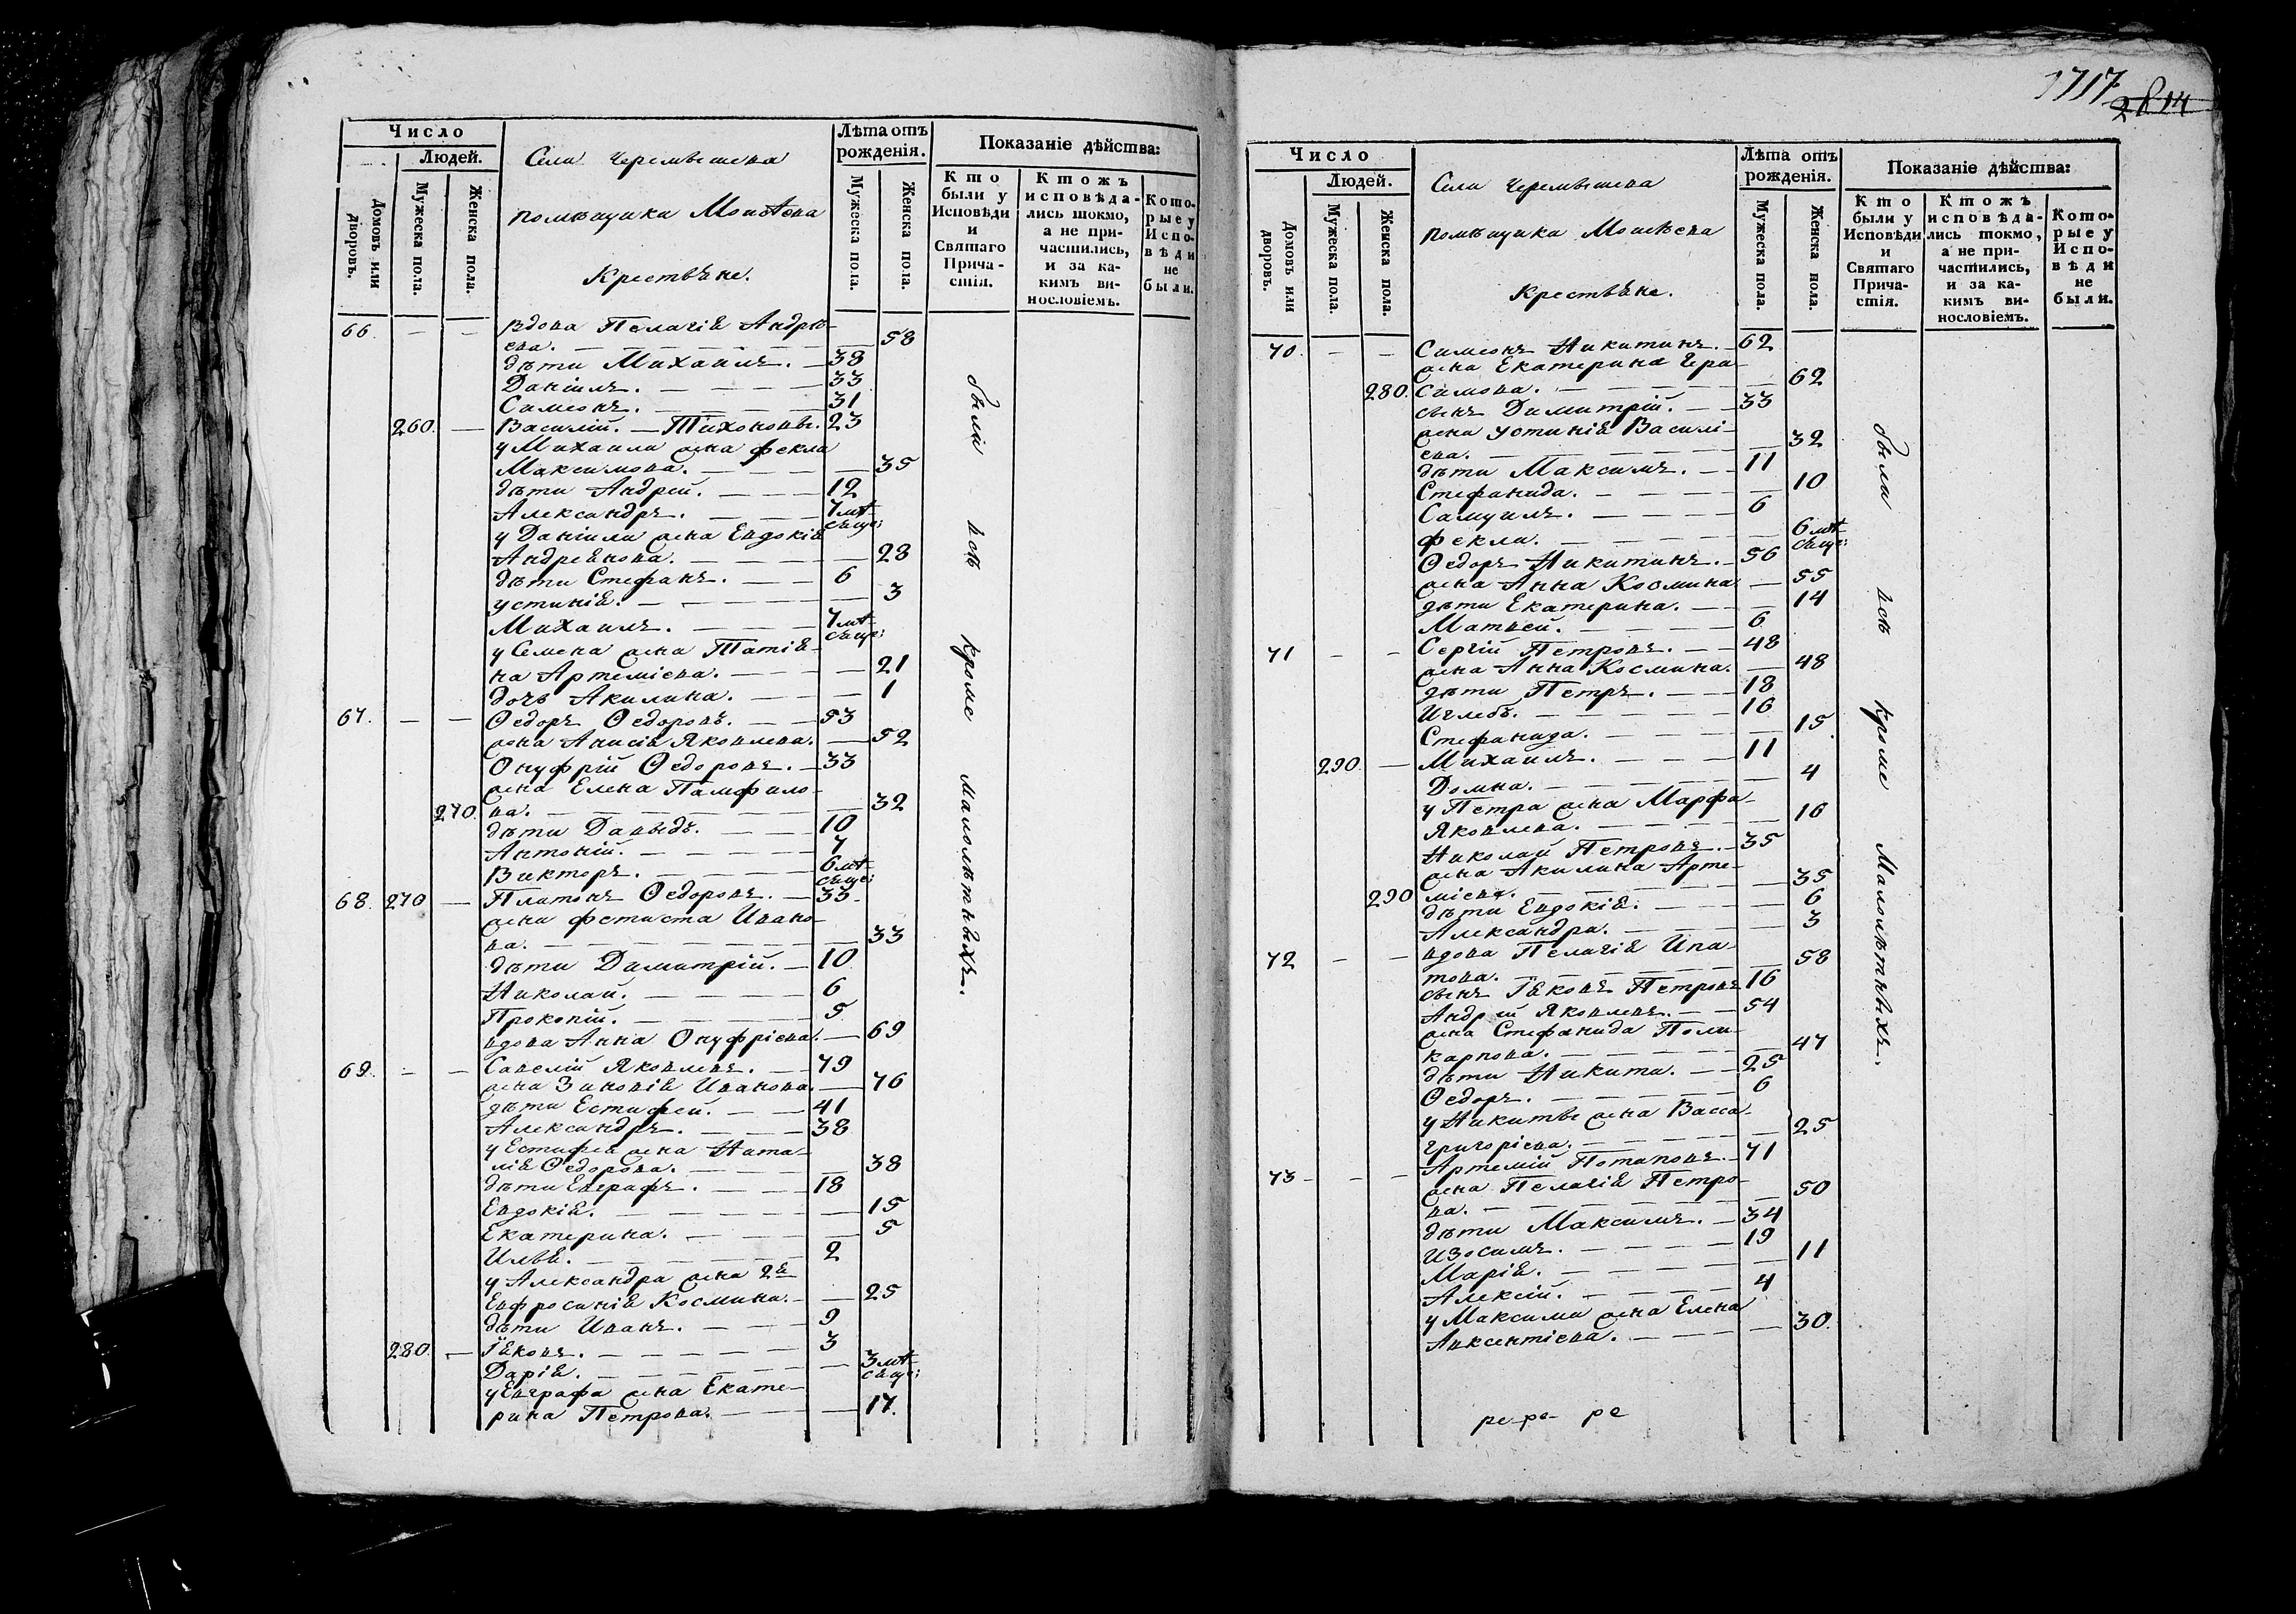 Число
Людей.
Домовъ или дворовъ.
Мужеска пола.
Женска пола.
Села Черемышева
помѣщика Моисѣева
Крестьяне.
Лѣта отъ рожденія.
Мужеска пола.
Женска пола.
Показаніе дѣйства:
Кто были у Исповѣди и Святаго Причастія.
Ктожъ исповѣдались токмо, а не причастились, и за какимъ винословіемъ.
Которые у Исповѣди не были.
66. — — вдова Пелагія Андрѣ-
ева. — 58
дѣти Михаилъ. — 38
Даніилъ. — 33
Симеонъ. — 31
260. — Василій. — Тихоновы. 23
у Михаила жена Фекла
Максимова. — 35
дѣти Андрей. — 12
Александръ. — 7 мѣ-
сяце:
у Даніила жена Евдокія
Андреянова. — 28
дѣти Стефанъ. — 6
Устинія. — 3
Михаилъ. — 7 мѣ-
сяце:
у Семена жена Татія-
на Артеміева. — 21
дочь Акилина. — 1
67. — — Ѳедоръ Ѳедоровъ. — 53
жена Анисія Яковлева. — 52
Онуфрій Ѳедоровъ. — 33
жена Елена Памфило-
270. ва. — 32
дѣти Давыдъ. — 10
Антоній. — 7
Викторъ. — 6 мѣ-
сяце:
68. 270 — Платонъ Ѳедоровъ. — 35.
жена Фетиста Ивано-
ва. — 33
дѣти Димитрій. — 10
Николай. — 6
Прокопій. — 5
вдова Анна Онуфріева. — 69
69. — — Савелій Яковлевъ. — 79
жена Зиновія Иванова. — 76
дѣти Естифей. — 41
Александръ. — 38
у Естифея жена Ната-
лія Ѳедорова. — 38
дѣти Евграфъ. — 18
Евдокія. — 15
Екатерина. — 5
Илья. — 2
у Александра жена 2я
Евфросинія Космина. — 25
дѣти Иванъ. — 9
280. — Іяковъ. — 3
Дарія. — 3 мѣ-
сяце:
у Евграфа жена Екате-
рина Петрова. — 17.
были всѣ кроме малолѣтныхъ.
1717
2814
Число
Людей.
Домовъ или дворовъ.
Мужеска пола.
Женска пола.
Села Черемышева
помѣщика Моисѣева
Крестьяне.
Лѣта отъ рожденія.
Мужеска пола.
Женска пола.
Показаніе дѣйства:
Кто были у Исповѣди и Святаго Причастія.
Ктожъ исповѣдались токмо, а не причастились, и за какимъ винословіемъ.
Которые у Исповѣди не были.
70. — — Симеонъ Никитинъ. — 62
жена Екатерина Гера-
280. симова. — 62
сынъ Димитрій. — 33
жена Устинія Василі-
ева. — 32
дѣти Максимъ. — 11
Стефанида. — 10
Самуилъ. — 6
Фекла. — 6 мѣ-
сяце:
Ѳедоръ Никитинъ. — 56
жена Анна Космина — 55
дѣти Екатерина. — 14
Матвей. — 6
71 — — Сергій Петровъ. — 48
жена Анна Космина. — 48
дѣти Петръ. — 18
Иглебъ. — 16
Стефанида. — 15
290. — Михаилъ. — 11
Домна. — 4
у Петра жена Марфа
Яковлева. — 16
Николай Петровъ. — 35
жена Акилина Арте-
290 міева. — 35
дѣти Евдокія. — 6
Александра. — 3
72 — — вдова Пелагія Ипа-
това. — 58
сынъ Іяковъ Петровъ 16
Андрей Яковлевъ. — 54
жена Стефанида Поли-
карпова. — 47
дѣти Никита. — 25
Ѳедоръ. — 6
у Никиты жена Васса
Григоріева. — 25
73 — — Артемій Потаповъ. — 71
жена Пелагія Петро-
ва. — 50
дѣти Максимъ. — 34
Изосимъ. — 19
Марія. — 11
Алексій. — 4
у Максима жена Елена
Авксентіева. — 30.
были всѣ кроме Малолѣтныхъ.